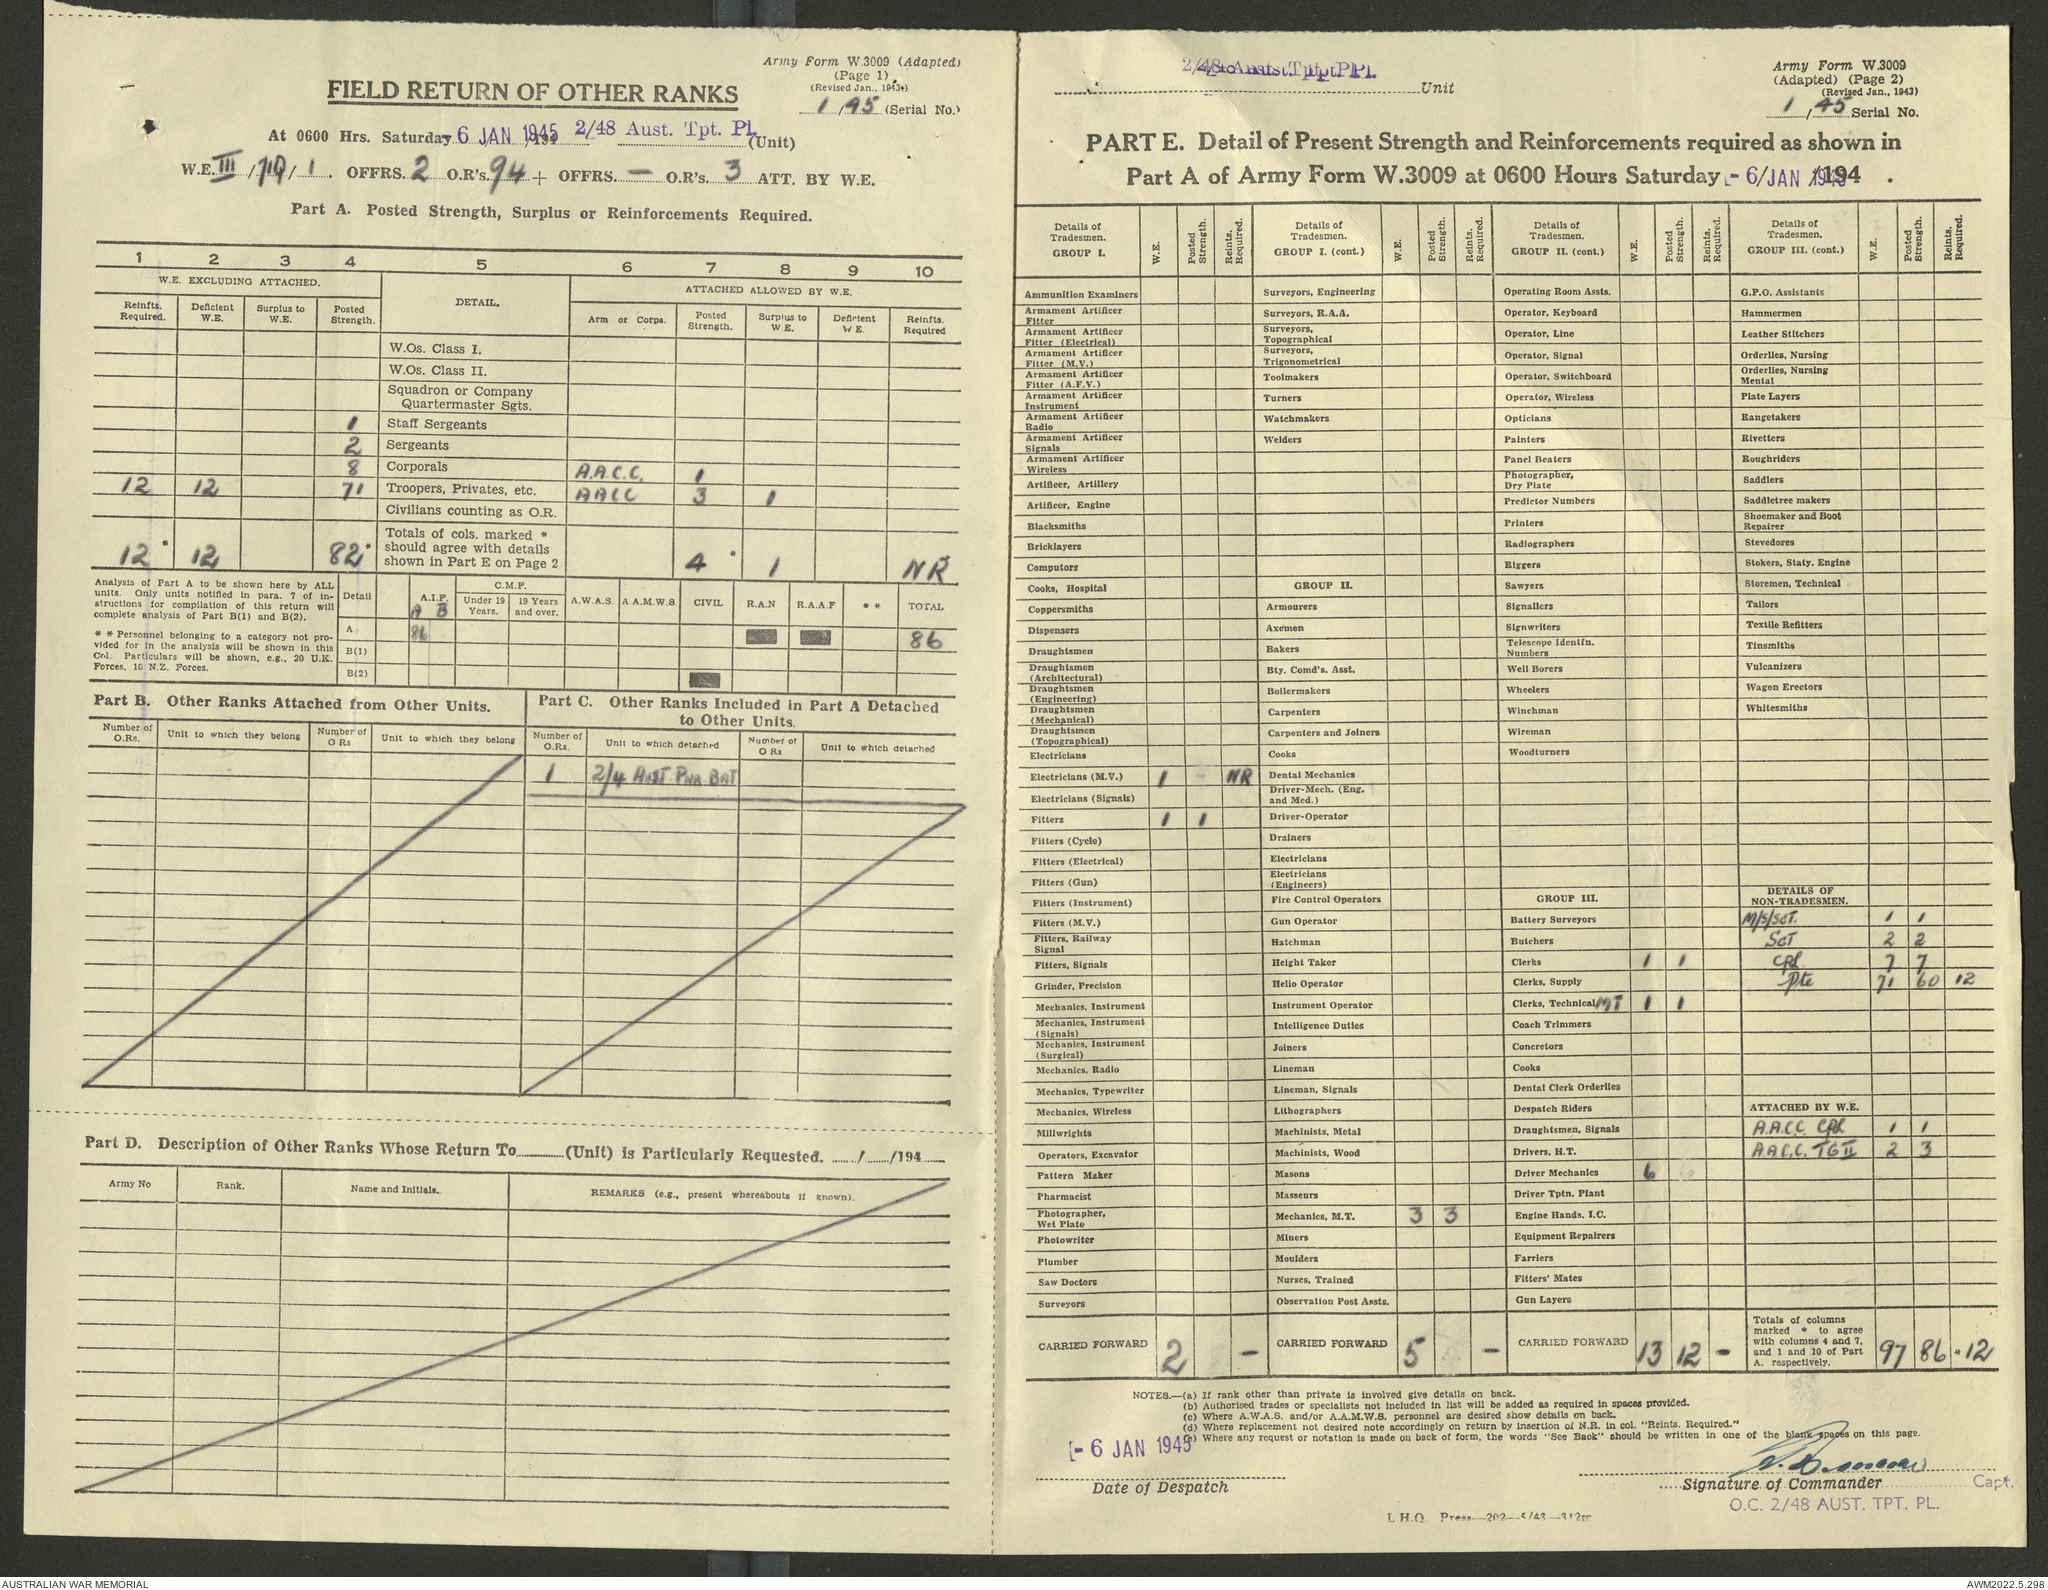 Army Form W.3009 (Adapted)
(Page 1)
(Revised Jan., 1943)
FIELD RETURN OF OTHER RANKS
1/45 (Serial No.)
At 0600 Hrs. Saturday - 6 JAN 1945 /194 2/48 Aust. Tpt. Pl. (Unit)
W.E. III / 710 / 1. OFFRS. 2 O.R's. 94 + OFFRS. — O.R's. 3 ATT. BY W.E.
Part A. Posted Strength, Surplus or Reinforcements Required.
1 2 3 4 5 6 7 8 9 10
W.E. EXCLUDING ATTACHED. DETAIL. ATTACHED ALLOWED BY W.E.
Reinfts. Required. Deficient W.E. Surplus to W.E. Posted Strength. Arm or Corps. Posted Strength. Surplus to W.E. Deficient W.E. Reinfts. Required
W.Os. Class I.
W.Os. Class II.
Squadron or Company
Quartermaster Sgts.
1 Staff Sergeants
2 Sergeants
8 Corporals A.A.C.C. 1
12 12 71 Troopers, Privates, etc. AACC 3 1
Civilians counting as O.R.
12 * 12 82 * Totals of cols. marked * should agree with details shown in Part E on Page 2 4 * 1 NR
Analysis of Part A to be shown here by ALL
units. Only units notified in para. 7 of in-
structions for compilation of this return will
complete analysis of Part B(1) and B(2).
* * Personnel belonging to a category not pro-
vided for in the analysis will be shown in this
Col. Particulars will be shown, e.g., 20 U.K.
Forces, 10 N.Z. Forces.
Detail A.I.F. A B C.M.F. Under 19 Years. 19 Years and over. A.W.A.S. A.A.M.W.S CIVIL R.A.N R.A.A.F * * TOTAL
A 86 86
B(1)
B(2)
Part B. Other Ranks Attached from Other Units.
Number of O.Rs. Unit to which they belong Number of O Rs Unit to which they belong
Part C. Other Ranks Included in Part A Detached
to Other Units.
Number of O.Rs. Unit to which detached Number of O Rs Unit to which detached
1 2/4 Aust Pnr Bat
Part D. Description of Other Ranks Whose Return To (Unit) is Particularly Requested. / /194
Army No Rank. Name and Initials. REMARKS (e.g., present whereabouts if known).
2/48 Aust. Tpt. Pl. Unit
Army Form W.3009
(Adapted) (Page 2)
(Revised Jan., 1943)
1/45 Serial No.
PART E. Detail of Present Strength and Reinforcements required as shown in
Part A of Army Form W.3009 at 0600 Hours Saturday - 6 JAN 1945 /194 .
Details of Tradesmen. GROUP I. W.E. Posted Strength. Reints. Required.
Ammunition Examiners
Armament Artificer Fitter
Armament Artificer Fitter (Electrical)
Armament Artificer Fitter (M.V.)
Armament Artificer Fitter (A.F.V.)
Armament Artificer Instrument
Armament Artificer Radio
Armament Artificer Signals
Armament Artificer Wireless
Artificer, Artillery
Artificer, Engine
Blacksmiths
Bricklayers
Computors
Cooks, Hospital
Coppersmiths
Dispensers
Draughtsmen
Draughtsmen (Architectural)
Draughtsmen (Engineering)
Draughtsmen (Mechanical)
Draughtsmen (Topographical)
Electricians
Electricians (M.V.) 1 NR
Electricians (Signals)
Fitters 1 1
Fitters (Cycle)
Fitters (Electrical)
Fitters (Gun)
Fitters (Instrument)
Fitters (M.V.)
Fitters, Railway Signal
Fitters, Signals
Grinder, Precision
Mechanics, Instrument
Mechanics, Instrument (Signals)
Mechanics, Instrument (Surgical)
Mechanics, Radio
Mechanics, Typewriter
Mechanics, Wireless
Millwrights
Operators, Excavator
Pattern Maker
Pharmacist
Photographer, Wet Plate
Photowriter
Plumber
Saw Doctors
Surveyors
CARRIED FORWARD 2 —
Details of Tradesmen. GROUP I. (cont.) W.E. Posted Strength. Reints. Required.
Surveyors, Engineering
Surveyors, R.A.A.
Surveyors, Topographical
Surveyors, Trigonometrical
Toolmakers
Turners
Watchmakers
Welders
GROUP II.
Armourers
Axemen
Bakers
Bty. Comd's. Asst.
Boilermakers
Carpenters
Carpenters and Joiners
Cooks
Dental Mechanics
Driver-Mech. (Eng. and Med.)
Driver-Operator
Drainers
Electricians
Electricians (Engineers)
Fire Control Operators
Gun Operator
Hatchman
Height Taker
Helio Operator
Instrument Operator
Intelligence Duties
Joiners
Lineman
Lineman, Signals
Lithographers
Machinists, Metal
Machinists, Wood
Masons
Masseurs
Mechanics, M.T. 3 3
Miners
Moulders
Nurses, Trained
Observation Post Assts.
CARRIED FORWARD 5 —
Details of Tradesmen. GROUP II. (cont.) W.E. Posted Strength. Reints. Required.
Operating Room Assts.
Operator, Keyboard
Operator, Line
Operator, Signal
Operator, Switchboard
Operator, Wireless
Opticians
Painters
Panel Beaters
Photographer, Dry Plate
Predictor Numbers
Printers
Radiographers
Riggers
Sawyers
Signallers
Signwriters
Telescope Identfn. Numbers
Well Borers
Wheelers
Winchman
Wireman
Woodturners
GROUP III.
Battery Surveyors
Butchers
Clerks 1 1
Clerks, Supply
Clerks, Technical MT 1 1
Coach Trimmers
Concretors
Cooks
Dental Clerk Orderlies
Despatch Riders
Draughtsmen, Signals
Drivers, H.T.
Driver Mechanics 6
Driver Tptn. Plant
Engine Hands, I.C.
Equipment Repairers
Farriers
Fitters' Mates
Gun Layers
CARRIED FORWARD 13 12 —
Details of Tradesmen. GROUP III. (cont.) W.E. Posted Strength. Reints. Required.
G.P.O. Assistants
Hammermen
Leather Stitchers
Orderlies, Nursing
Orderlies, Nursing Mental
Plate Layers
Rangetakers
Rivetters
Roughriders
Saddlers
Saddletree makers
Shoemaker and Boot Repairer
Stevedores
Stokers, Staty. Engine
Storemen, Technical
Tailors
Textile Refitters
Tinsmiths
Vulcanizers
Wagon Erectors
Whitesmiths
DETAILS OF NON-TRADESMEN.
M/S/Sgt. 1 1
Sgt 2 2
Cpl 7 7
Pte 71 60 12
ATTACHED BY W.E.
A.A.C.C. Cpl 1 1
A.A.C.C. TG II 2 3
Totals of columns marked * to agree with columns 4 and 7, and 1 and 10 of Part A. respectively. 97 86 * 12
NOTES.—(a) If rank other than private is involved give details on back.
(b) Authorised trades or specialists not included in list will be added as required in spaces provided.
(c) Where A.W.A.S. and/or A.A.M.W.S. personnel are desired show details on back.
(d) Where replacement not desired note accordingly on return by insertion of N.R. in col. "Reints. Required."
(e) Where any request or notation is made on back of form, the words "See Back" should be written in one of the blank spaces on this page.
- 6 JAN 1945
Date of Despatch
Signature of Commander Capt.
O.C. 2/48 AUST. TPT. PL.
L.H.Q. Press—202—5/43—312m
AUSTRALIAN WAR MEMORIAL
AWM2022.5.298